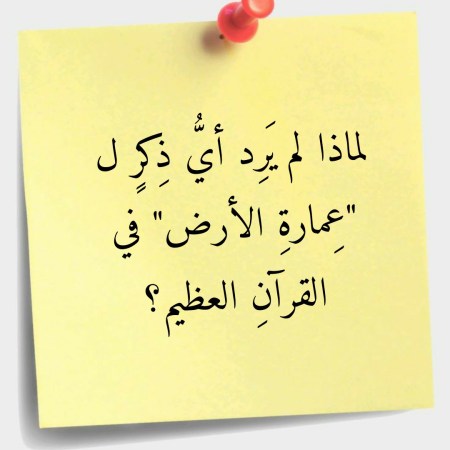 لماذا لم يَرِد أيُّ ذِكرٍ ل
"عِمارةِ الأرض" في
القرآنِ العظيم؟